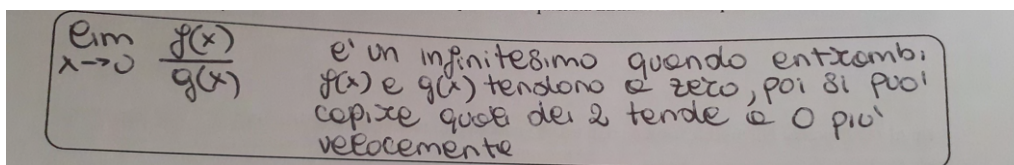 lim f(x)/g(x) e' un infinitesimo quando entrambi
x→0 f(x) e g(x) tendono a zero, poi si puoi
capire quale dei 2 tende a 0 piu'
velocemente